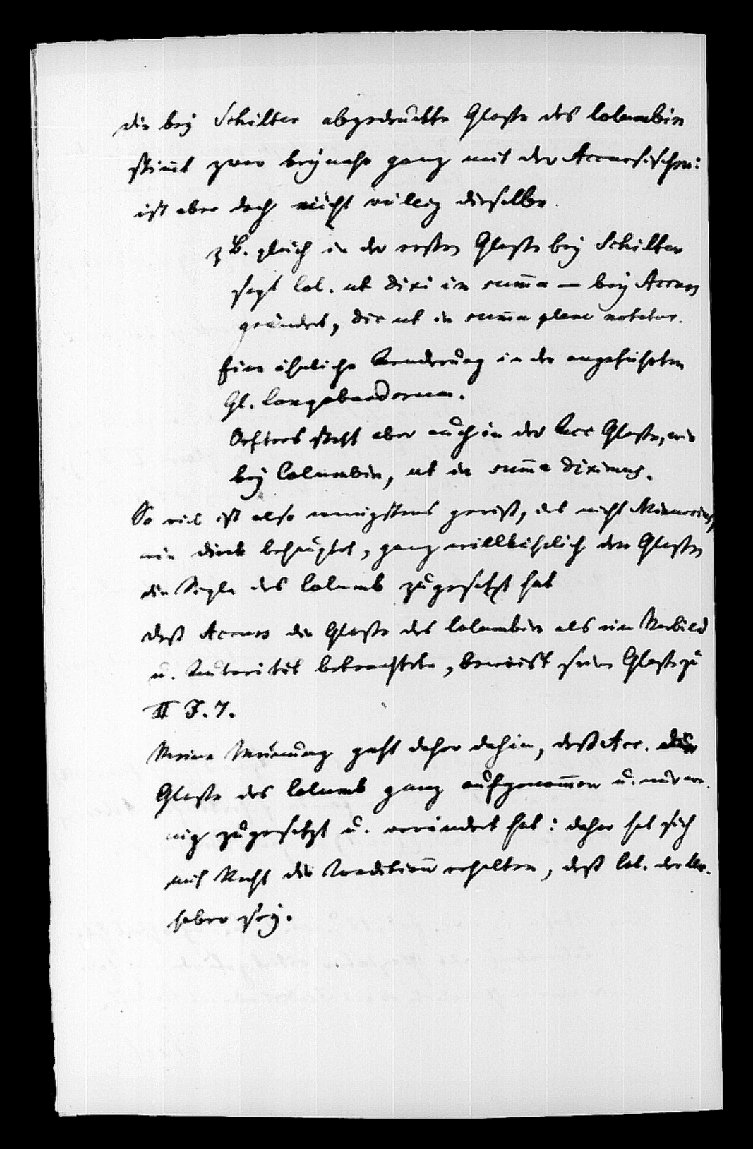 die bey Schilter abgedruckte Glosse des Columbin
stimt zwar beynahe ganz mit der Accursischen:
ist aber doch nicht völlig dieselbe.
z B. gleich in der ersten Glosse bey Schilter
sagt Col. ut dixi in sum̅a — bey Accurs
geändert, dic ut in sum̅a plene notatur.
Eine ähnliche Aenderung in der angeführten
Gl. Longobardorum.
Oefters steht aber auch in der Acc Glosse, wie
bey Columbin, ut in sum̅a diximus.
So viel ist also wenigstens gewiß, das nicht Minucius,
wie Dieck behauptet, ganz willkührlich den Glossen
die Sigle des Columb zugesetzt hat
daß Accurs die Glosse des Columbin als ein Vorbild
u. Autorität betrachtete, beweist seine Glosse zu
II F. 7.
Meine Meinung geht daher dahin, daß Acc. die
Glosse des Columb ganz aufgenom̅en u. nur we-
nig zugesetzt u. verändert hat: daher hat sich
mit Recht die Tradition erhalten, daß Col. der Ur-
heber sey.